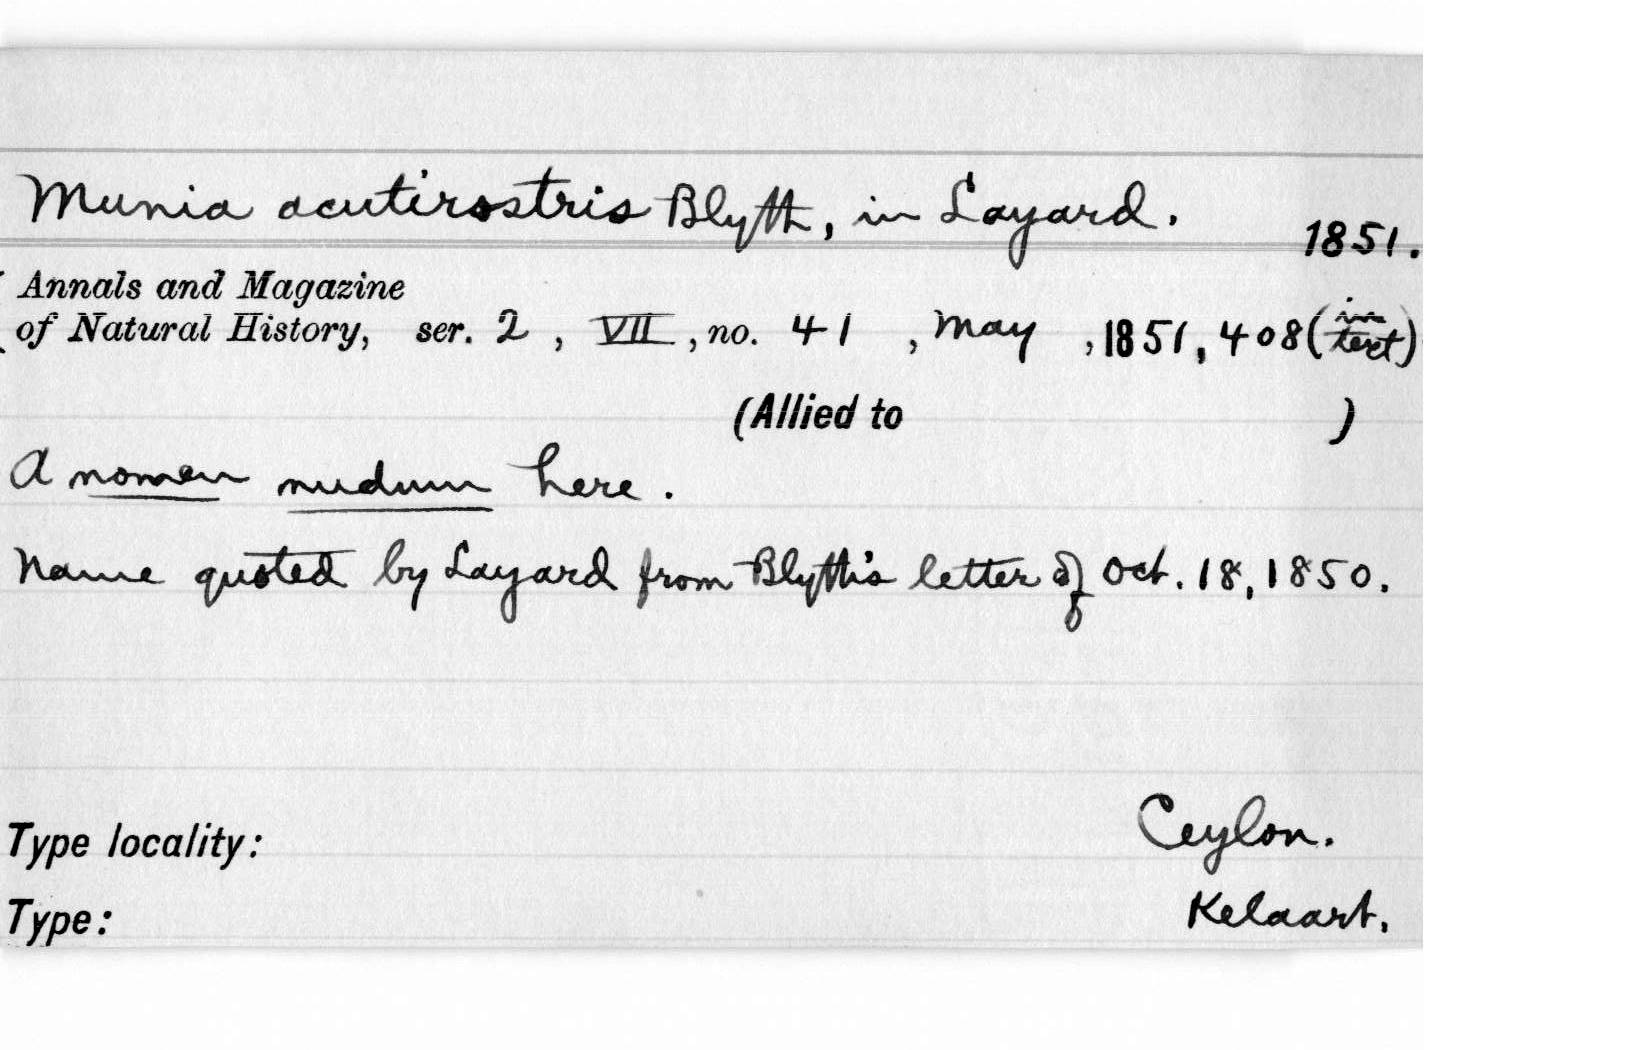 Munia acutirostris Blyth, in Layard.
1851.
Annals and Magazine
of Natural History, ser. 2, VII, no. 41, May, 1851, 408 (in text)
(Allied to )
A nomen nudum here.
Name quoted by Layard from Blyth's letter of Oct. 18, 1850.
Type locality: Ceylon.
Type: Kelaart.